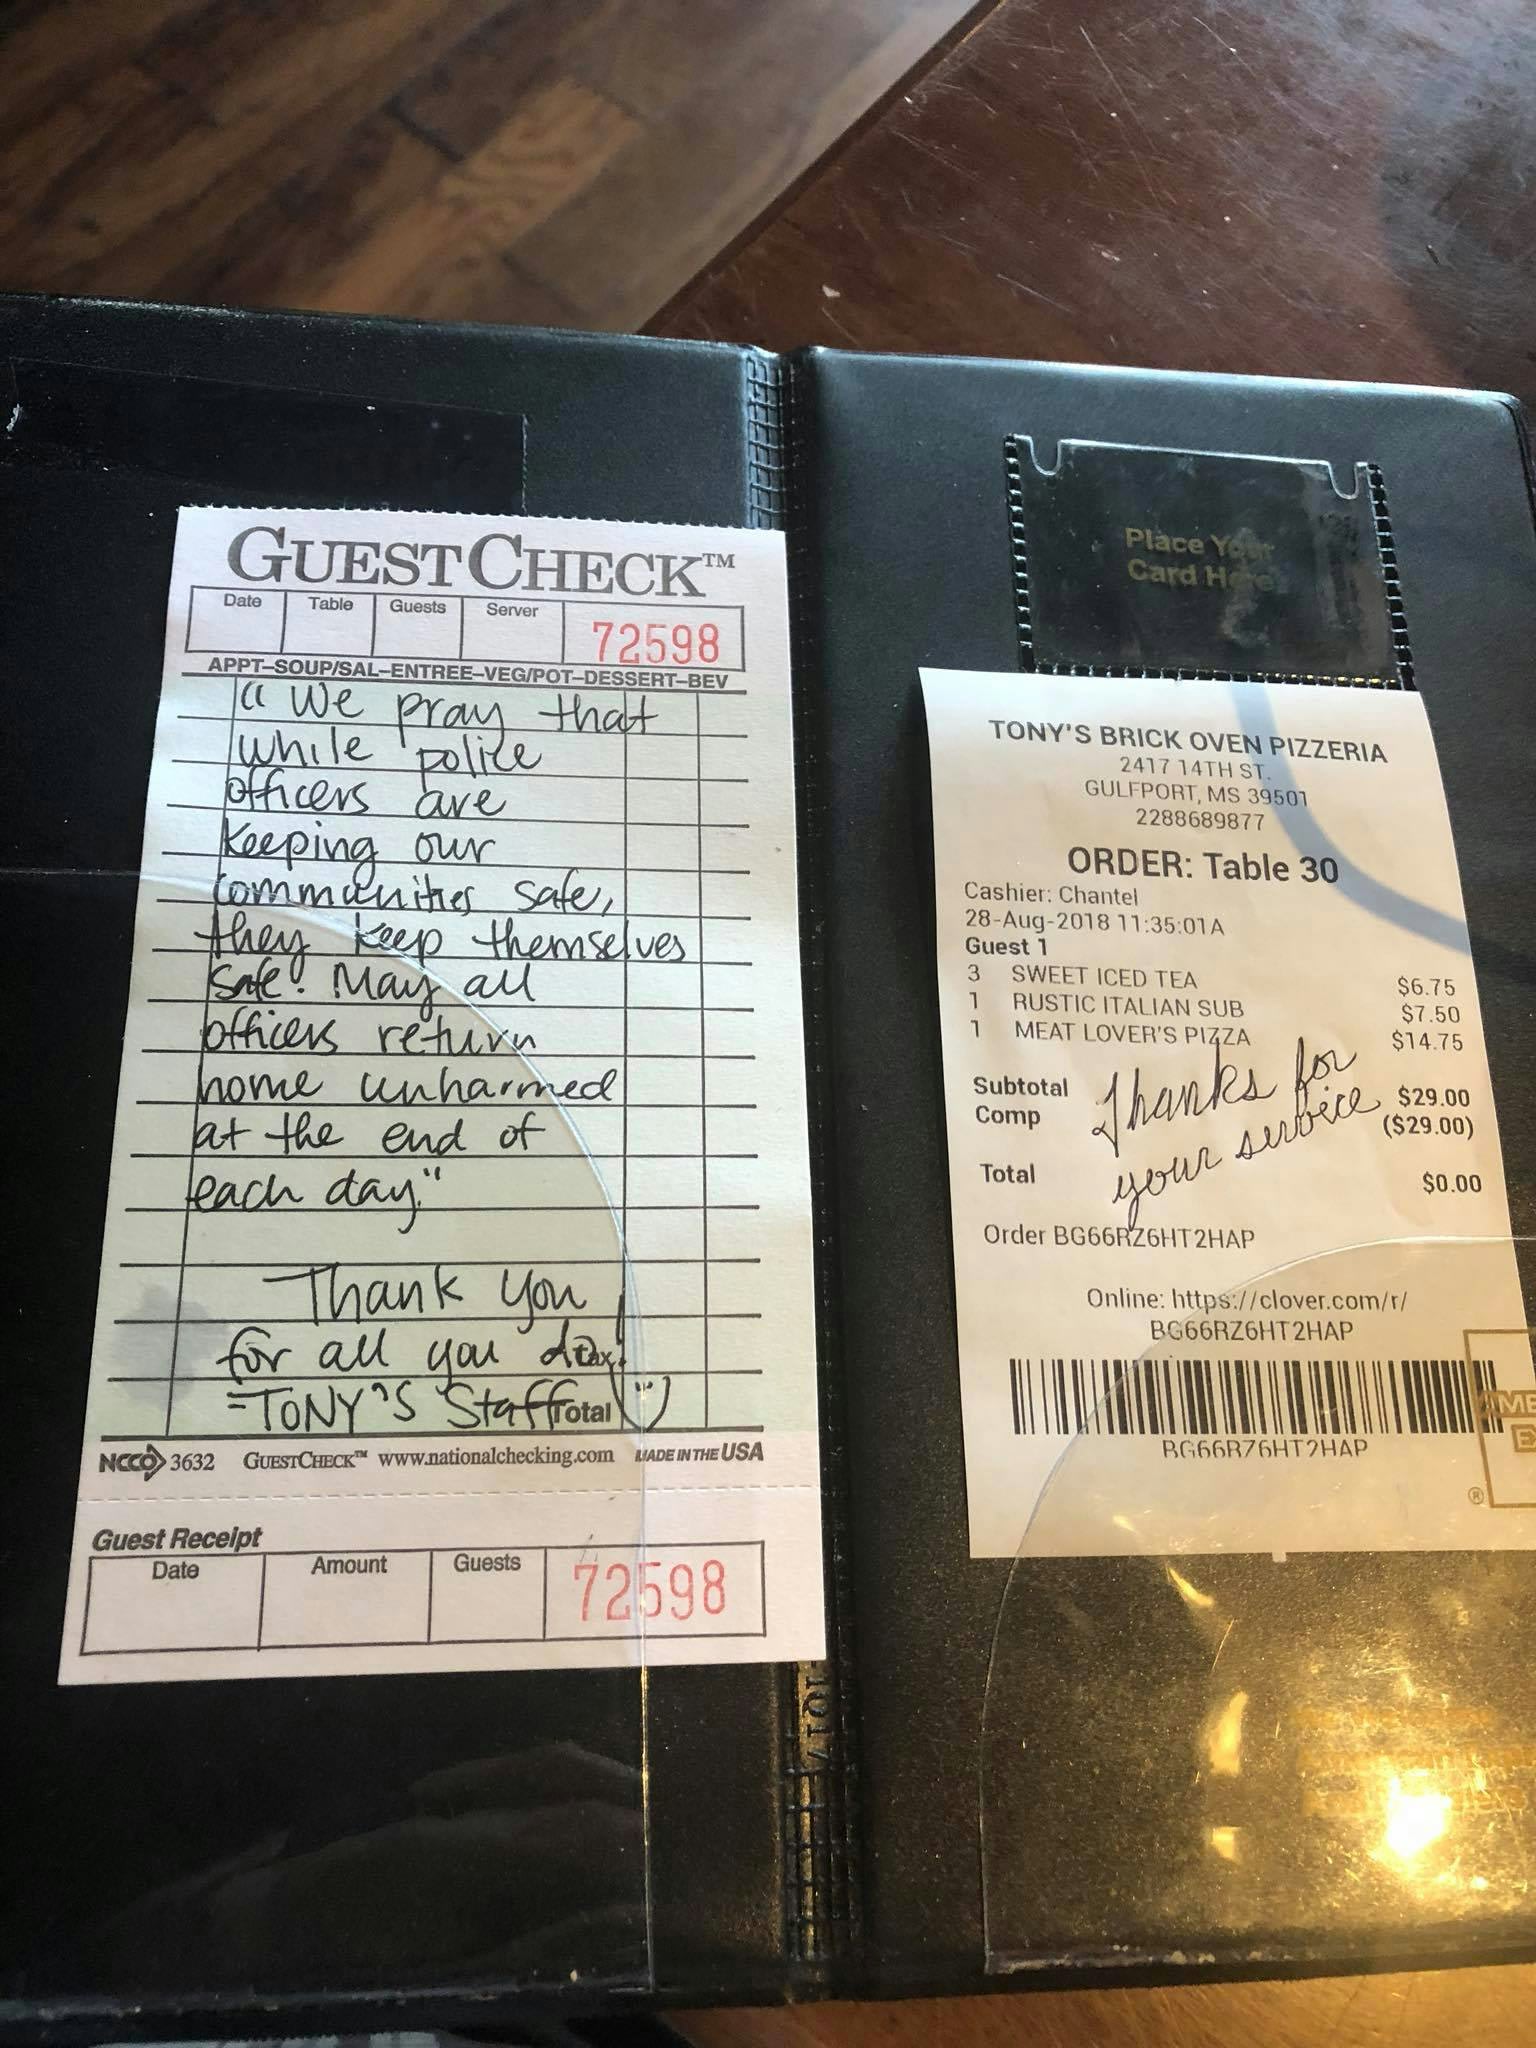 GUESTCHECK™
Date Table Guests Server 72598
APPT–SOUP/SAL–ENTREE–VEG/POT–DESSERT–BEV
“ We pray that
while police
officers are
keeping our
communities safe,
they keep themselves
safe. May all
officers return
home unharmed
at the end of
each day."
Thank you
for all you do!
Tax
-TONY'S Staff :)
Total
NCCO 3632 GUESTCHECK™ www.nationalchecking.com MADE IN THE USA
Guest Receipt
Date Amount Guests 72598
Place Your
Card Here
TONY'S BRICK OVEN PIZZERIA
2417 14TH ST.
GULFPORT, MS 39501
2288689877
ORDER: Table 30
Cashier: Chantel
28-Aug-2018 11:35:01A
Guest 1
3 SWEET ICED TEA $6.75
1 RUSTIC ITALIAN SUB $7.50
1 MEAT LOVER'S PIZZA $14.75
Subtotal $29.00
Comp ($29.00)
Thanks for
your service
Total $0.00
Order BG66RZ6HT2HAP
Online: https://clover.com/r/
BG66RZ6HT2HAP
BG66RZ6HT2HAP
AME
EX
®